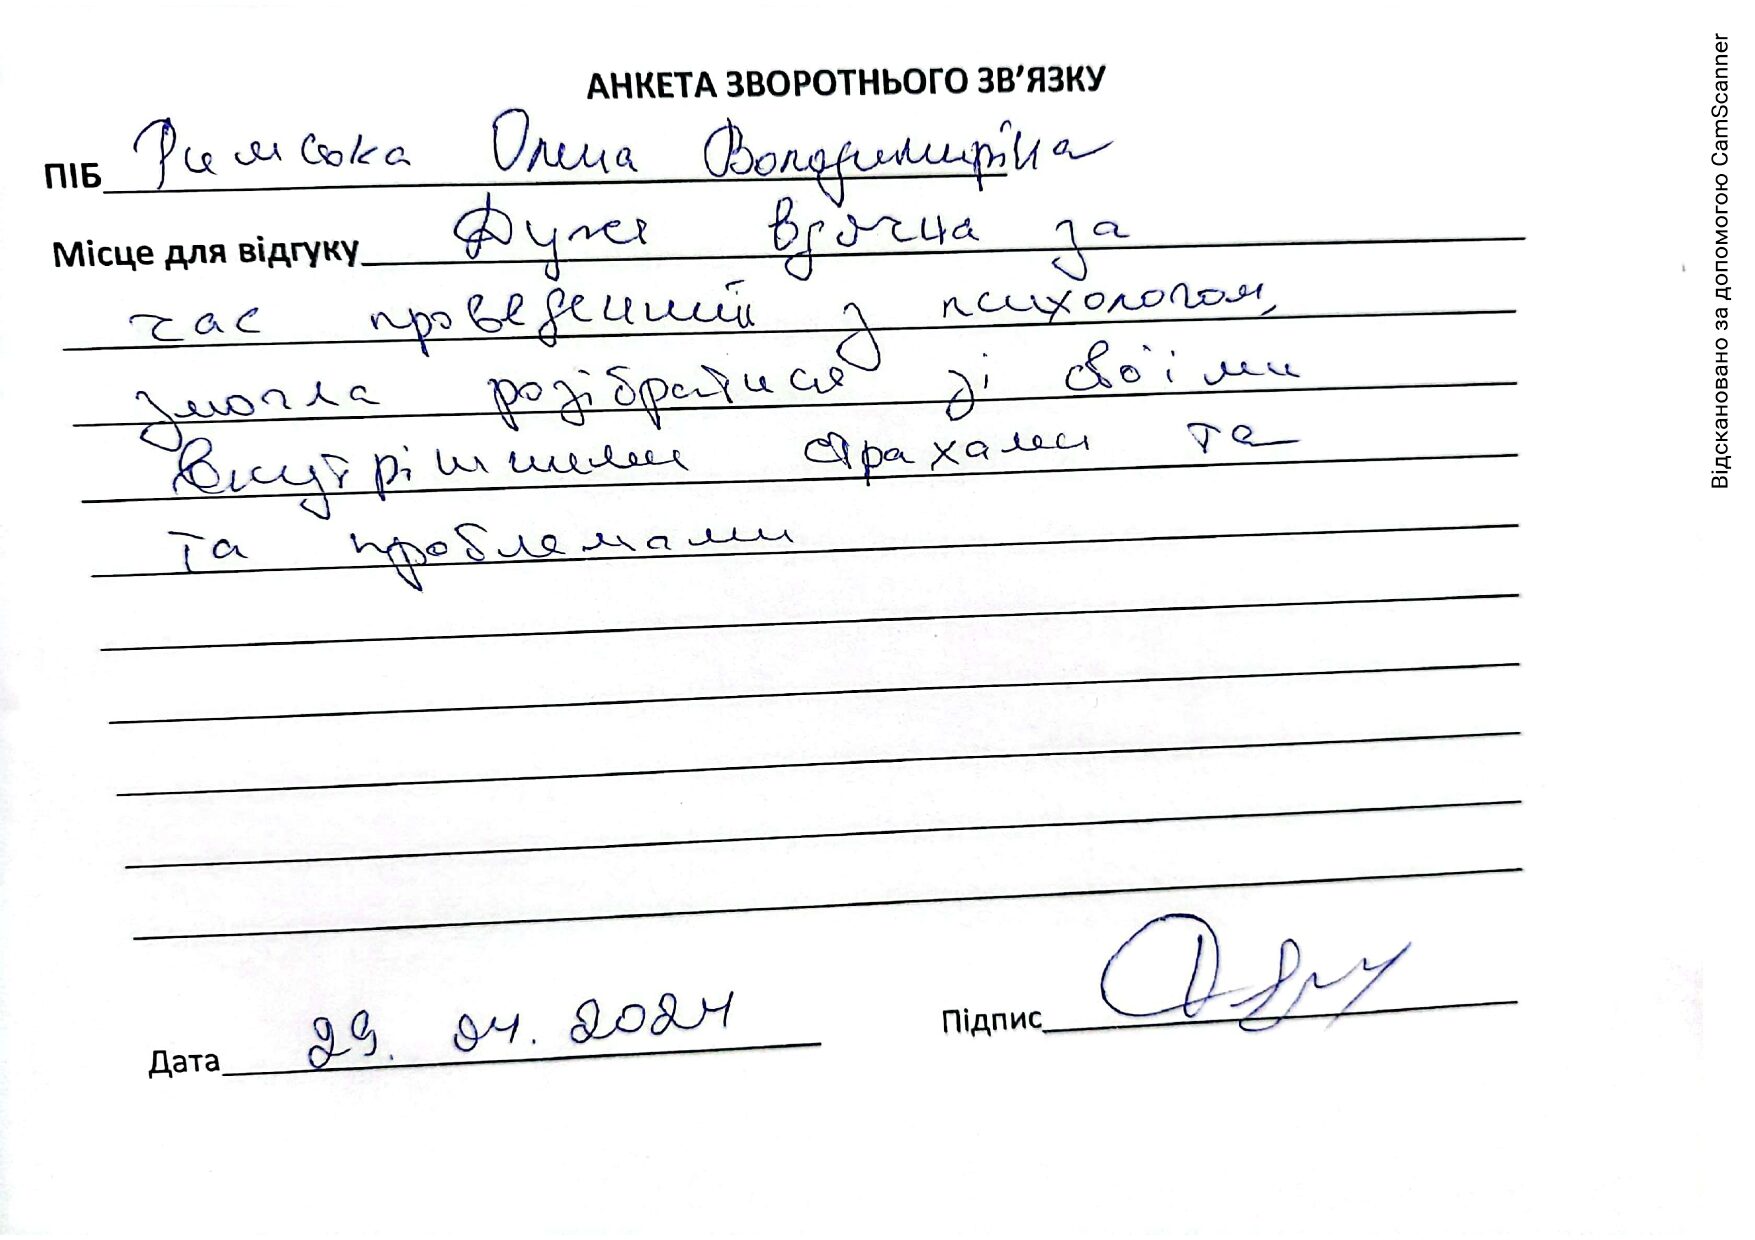 АНКЕТА ЗВОРОТНЬОГО ЗВ'ЯЗКУ
ПІБ Римська Олена Володимирівна
Місце для відгуку Дуже вдячна за
час проведений з психологом,
змогла розібратися зі своїми
внутрішніми страхами та
та проблемами
Дата 29.04.2024
Підпис
Відскановано за допомогою CamScanner